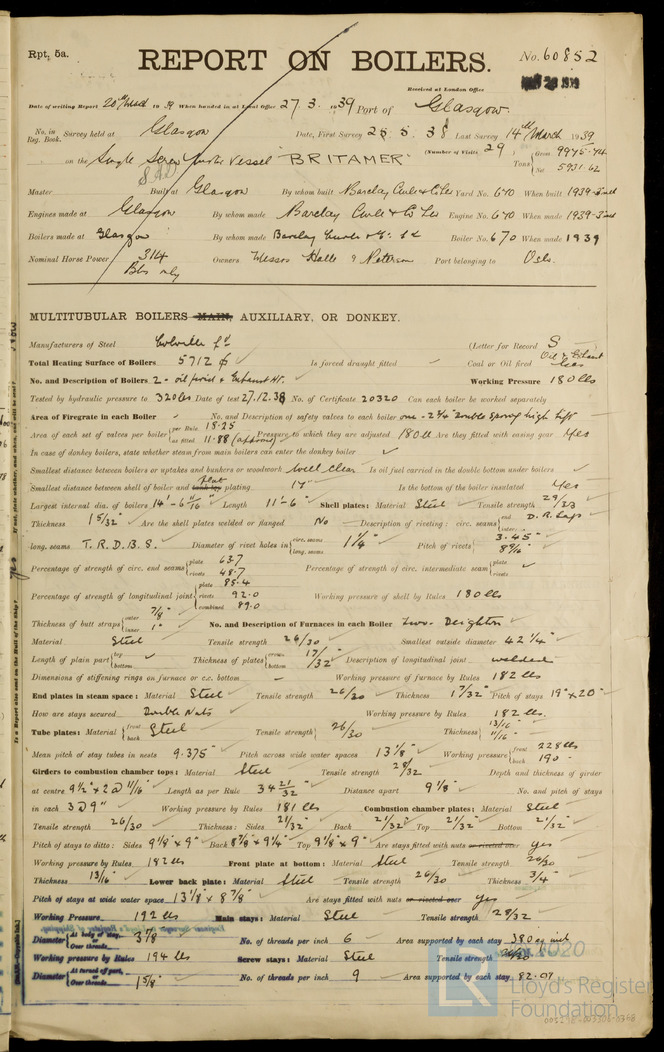 Rpt, 5a.
REPORT ON BOILERS.
No. 60852
Received at London Office
Date of writing Report 20th March 1939 When handed in at Local Office 27.3.1939 Port of Glasgow.
No. in Reg. Book. Survey held at Glasgow Date, First Survey 25.5.38 Last Survey 14th March 1939
on the Single Screw Vessel "BRITAMER" (Number of Visits 29) Tons Gross 9975.74 Net 5931.62
Master Built at Glasgow By whom built Barclay Curle & Co Ltd Yard No. 670 When built 1939
Engines made at Glasgow By whom made Barclay Curle & Co Ltd Engine No. 670 When made 1939
Boilers made at Glasgow By whom made Barclay Curle & Co Ld Boiler No. 670 When made 1939
Nominal Horse Power 314 Owners Messrs Halle & Peterson Port belonging to Oslo
Bls only
MULTITUBULAR BOILERS MAIN, AUXILIARY, OR DONKEY.
Manufacturers of Steel Colville Ld (Letter for Record S
Total Heating Surface of Boilers 5712 Is forced draught fitted Coal or Oil fired Oil & Exhaust Gas
No. and Description of Boilers 2 - oil fired & Exhaust Ht. Working Pressure 180 lbs
Tested by hydraulic pressure to 320 lbs Date of test 27.12.38 No. of Certificate 20320 Can each boiler be worked separately
Area of Firegrate in each Boiler No. and Description of safety valves to each boiler one - 2¾" double spring high lift
Area of each set of valves per boiler per Rule 18.25 as fitted 11.88 (approved) Pressure to which they are adjusted 180 lb Are they fitted with easing gear Yes
In case of donkey boilers, state whether steam from main boilers can enter the donkey boiler
Smallest distance between boilers or uptakes and bunkers or woodwork well clear Is oil fuel carried in the double bottom under boilers
Smallest distance between shell of boiler and tank top flat plating 17" Is the bottom of the boiler insulated Yes
Largest internal dia. of boilers 14'-6 11/16" Length 11'-6" Shell plates: Material Steel Tensile strength 29/33
Thickness 1 5/32" Are the shell plates welded or flanged No Description of riveting: circ. seams end D.R. Laps inter.
long. seams T.R.D.B.S. Diameter of rivet holes in circ. seams long. seams 1¼" Pitch of rivets 3.45" 8 9/16"
Percentage of strength of circ. end seams plate 63.7 rivets 48.7 Percentage of strength of circ. intermediate seam plate rivets
Percentage of strength of longitudinal joint plate 85.4 rivets 92.0 combined 89.0 Working pressure of shell by Rules 180 lbs
Thickness of butt straps outer 7/8" inner 1" No. and Description of Furnaces in each Boiler two - Deighton
Material Steel Tensile strength 26/30 Smallest outside diameter 42¼"
Length of plain part top bottom Thickness of plates crown bottom 17/32" Description of longitudinal joint welded
Dimensions of stiffening rings on furnace or c.c. bottom Working pressure of furnace by Rules 182 lbs
End plates in steam space: Material Steel Tensile strength 26/30 Thickness 1 7/32" Pitch of stays 19" x 20"
How are stays secured Double Nuts Working pressure by Rules 182 lbs.
Tube plates: Material front back Steel Tensile strength 26/30 Thickness 13/16" 11/16"
Mean pitch of stay tubes in nests 9.375" Pitch across wide water spaces 13⅛" Working pressure front 228 lbs back 190
Girders to combustion chamber tops: Material Steel Tensile strength 28/32 Depth and thickness of girder
at centre 9½" x 2 @ 11/16" Length as per Rule 34 21/32 Distance apart 9⅛" No. and pitch of stays
in each 3 @ 9" Working pressure by Rules 181 lbs Combustion chamber plates: Material Steel
Tensile strength 26/30 Thickness: Sides 21/32" Back 21/32" Top 21/32" Bottom 21/32"
Pitch of stays to ditto: Sides 9⅛" x 9" Back 8⅞" x 9¼" Top 9⅛" x 9" Are stays fitted with nuts or riveted over yes
Working pressure by Rules 182 lbs Front plate at bottom: Material Steel Tensile strength 26/30
Thickness 13/16" Lower back plate: Material Steel Tensile strength 26/30 Thickness 3/4"
Pitch of stays at wide water space 13⅛" x 8⅞" Are stays fitted with nuts or riveted over yes
Working Pressure 192 lbs Main stays: Material Steel Tensile strength 28/32
Diameter At body of stay, or Over threads 3⅛ No. of threads per inch 6 Area supported by each stay 380 sq inch
Working pressure by Rules 194 lbs Screw stays: Material Steel Tensile strength 26/30
Diameter At turned off part, or Over threads 1⅝" No. of threads per inch 9 Area supported by each stay 82.07
LR
Lloyd's Register
Foundation